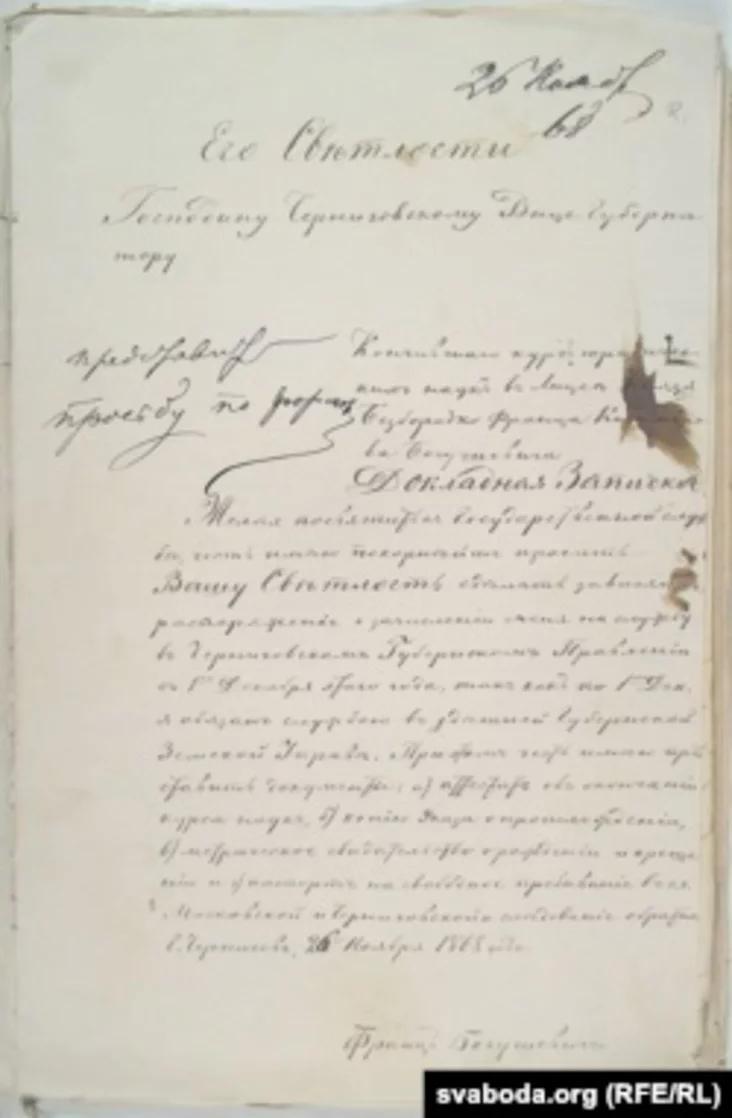 26 Нояб
68
Его Свѣтлости
Господину Черниговскому Вице Губерна
тору
представить
просьбу по формѣ
Кончившаго курсъ юридиче-
скихъ наукъ въ Лицеѣ Князя
Безбородко Франца
Богушевича
Докладная Записка
Желая посвятить Государственной служ
бѣ, честь имѣю покорнѣйше просить
Вашу Свѣтлость сдѣлать зависящее
распоряженіе о зачисленіи меня на службу
въ Черниговскомъ Губернскомъ Правленіи
съ 1го Декабря сего года, такъ какъ по 1е Дек.
я обязанъ службою въ здѣшней Губернской
Земской Управѣ. При семъ честь имѣю пред
ставить документы: а) аттестатъ объ окончаніи
курса наукъ, б) копію Указа о происхожденіи,
в) метрическое свидѣтельство о рожденіи и креще
ніи и г) паспортъ на свободное пребываніе
Московской и Черниговской
г. Черниговъ, 26 Ноября 1868 года
Францъ Богушевичъ
svaboda.org (RFE/RL)